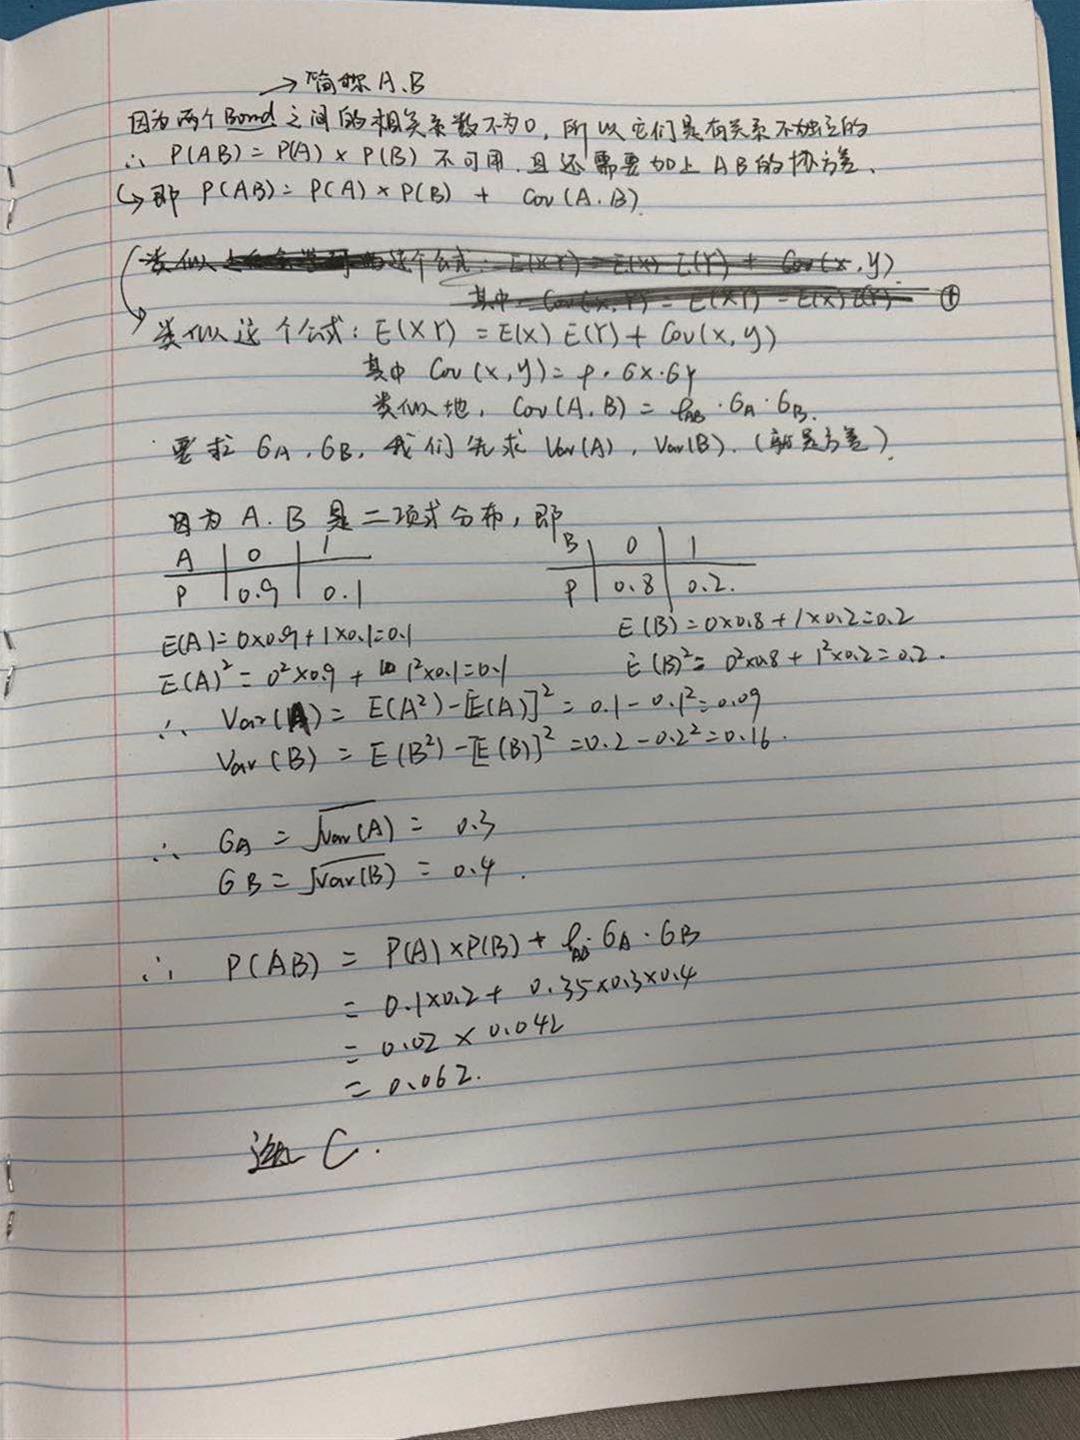 →简称A、B
因为两个Bond之间的相关系数不为0,所以它们是有关系不独立的
∴ P(AB)=P(A)×P(B)不可用.且还需要加上AB的协方差、
↳即 P(AB)=P(A)×P(B) + Cov(A.B)
类似 这个公式: E(XY)=E(X) E(Y) + Cov(x,y)
其中 Cov(x,Y) = E(XY) - E(X)E(Y) ①
类似这个公式: E(XY) = E(X) E(Y) + Cov(x,y)
其中 Cov(x,y)= ρ·σx·σy
类似地, Cov(A.B) = ρAB·σA·σB.
要求 σA,σB,我们先求 Var(A), Var(B).(就是方差)
因为 A.B 是二项式分布,即
A | 0 | 1 B | 0 | 1
P | 0.9 | 0.1 P | 0.8 | 0.2.
E(A)=0×0.9+1×0.1=0.1 E(B)=0×0.8+1×0.2=0.2
E(A)²=0²×0.9+1²×0.1=0.1 E(B)²=0²×0.8+1²×0.2=0.2.
∴ Var(A)= E(A²)-[E(A)]²=0.1-0.1²=0.09
Var(B)= E(B²)-[E(B)]²=0.2-0.2²=0.16.
∴ σA = √Var(A) = 0.3
σB = √Var(B) = 0.4.
∴ P(AB) = P(A)×P(B)+ρAB·σA·σB
= 0.1×0.2+ 0.35×0.3×0.4
= 0.02 × 0.042
= 0.062.
选 C.